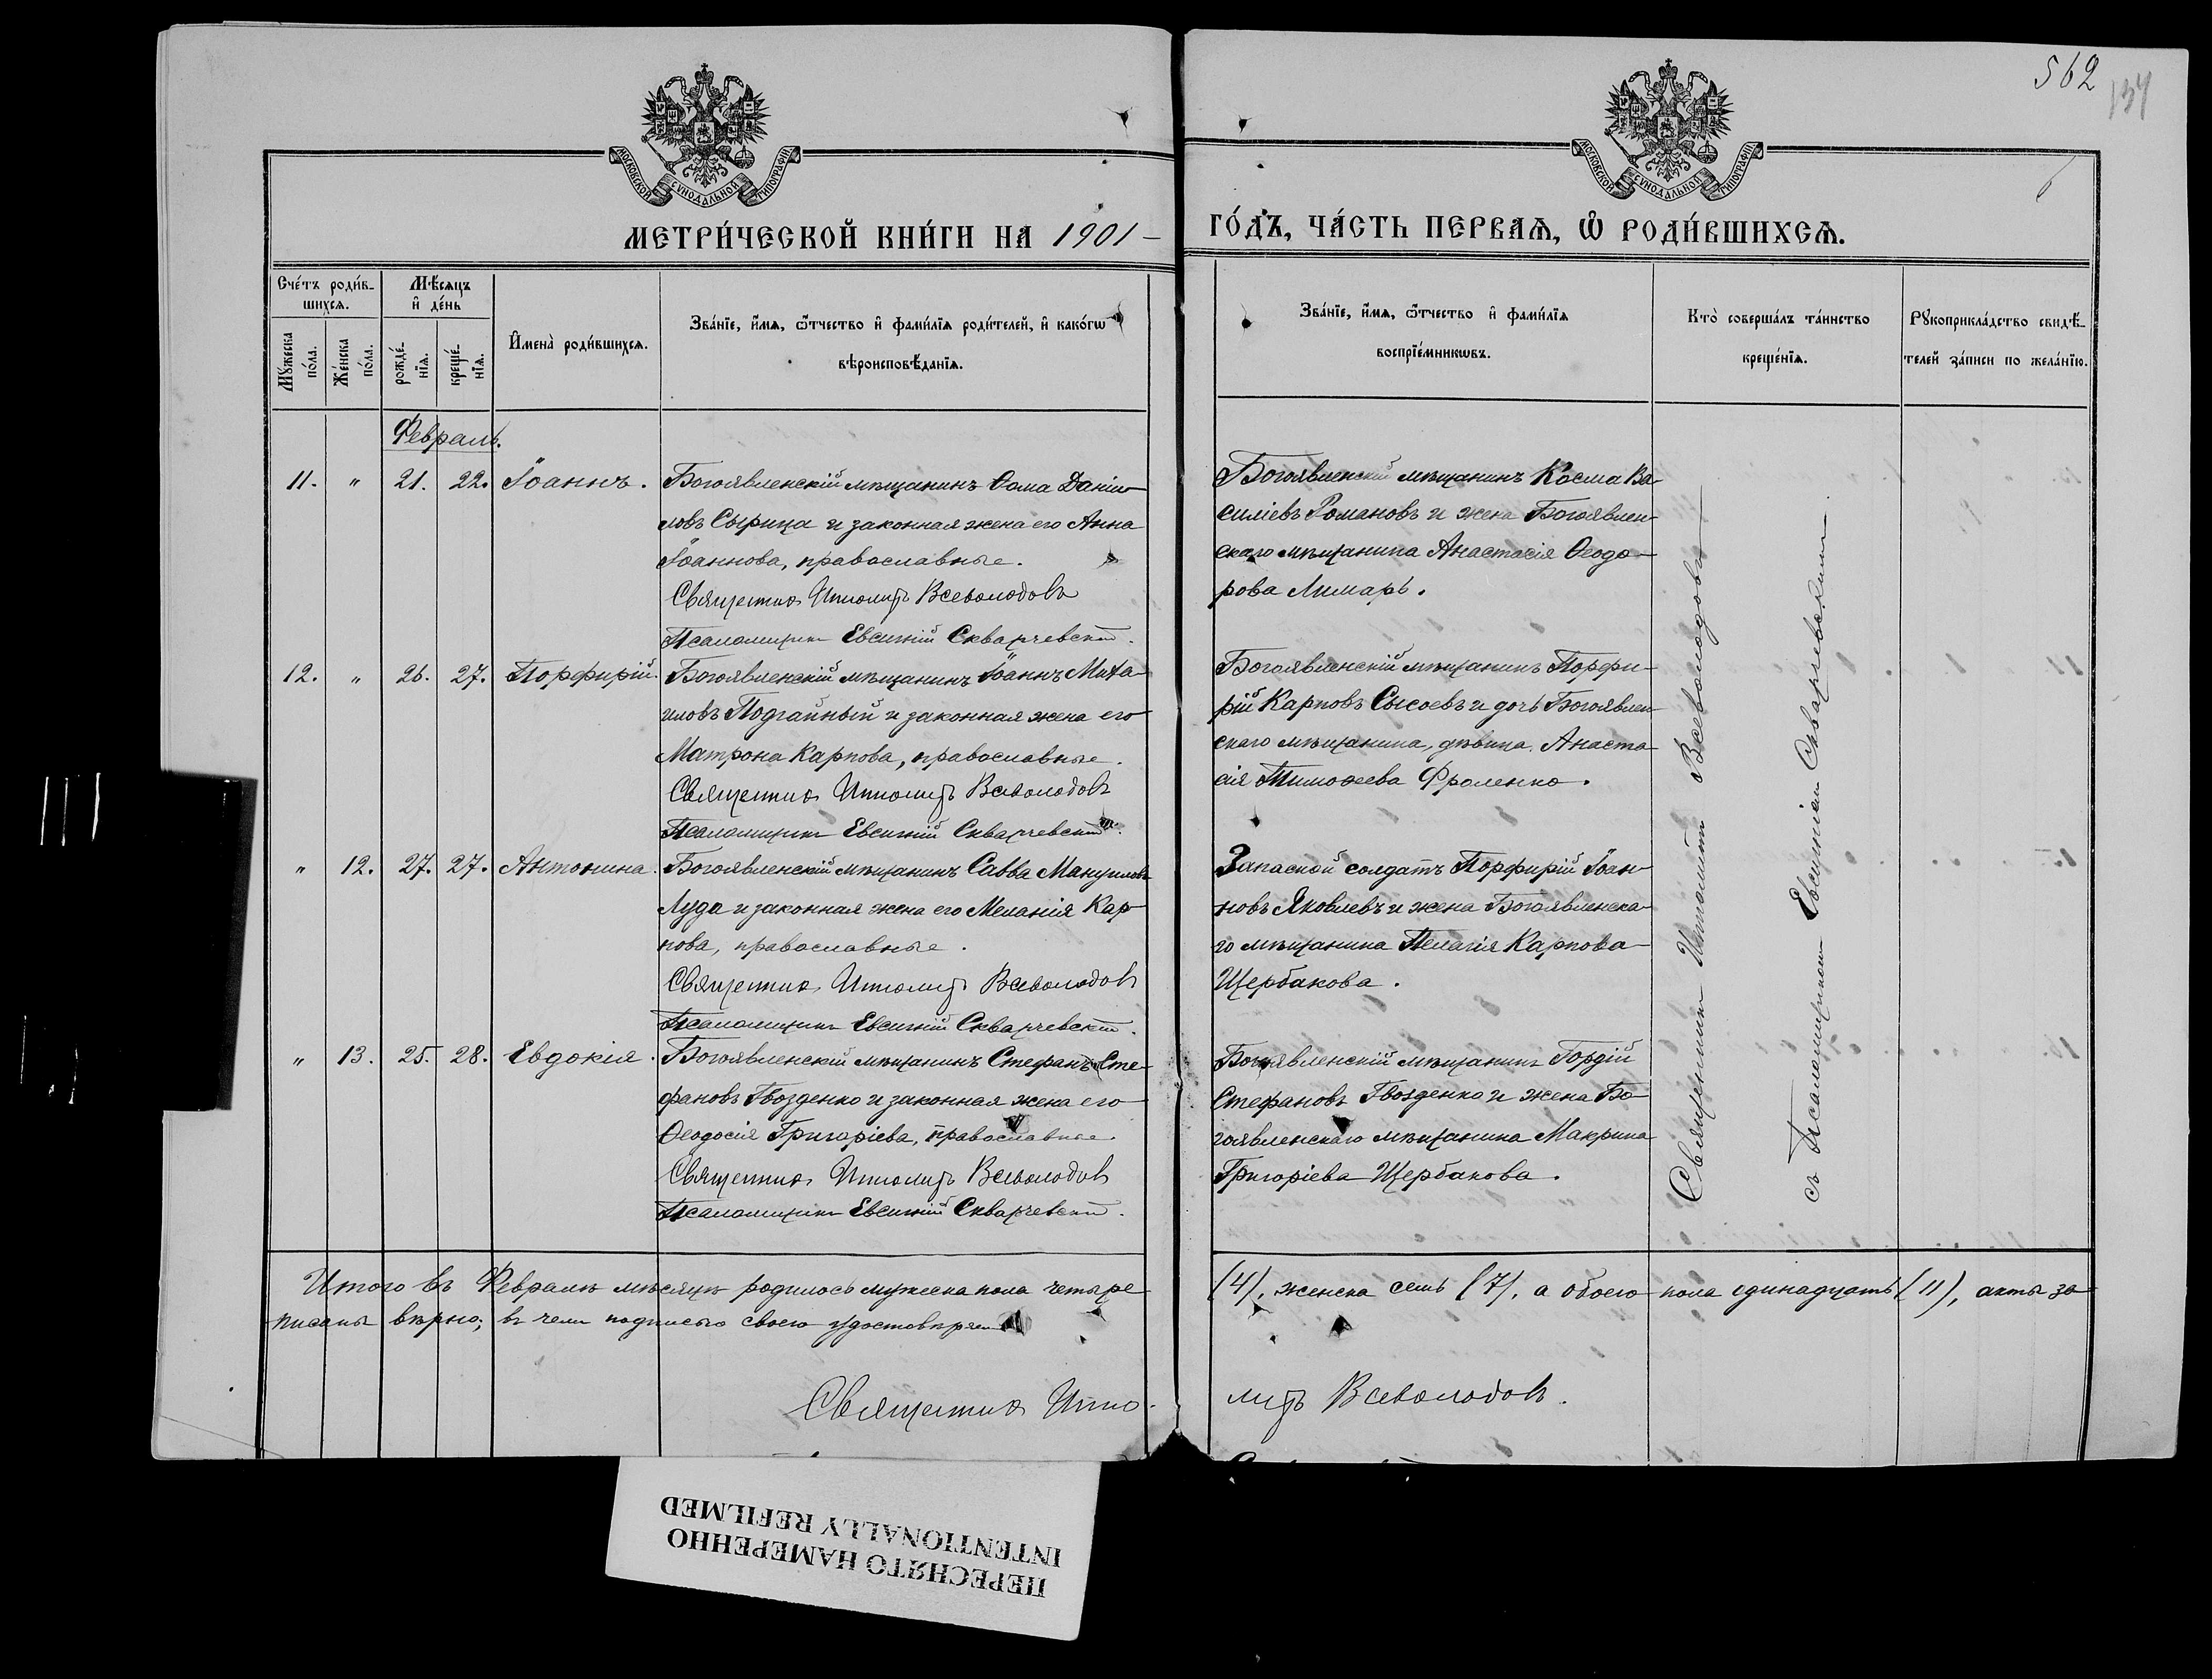 562
134
МОСКОВСКОЙ СѴНОДАЛЬНОЙ ТИПОГРАФІИ
МОСКОВСКОЙ СѴНОДАЛЬНОЙ ТИПОГРАФІИ
МЕТРИ́ЧЕСКОЙ КНИ́ГИ НА 1901 –
ГО́ДЪ, ЧА́СТЬ ПЕРВАѦ, Ѡ҆ РОДИ́ВШИХСѦ.
Сче́тъ роди́в-
шихсѧ.
Мꙋ́жеска по́ла.
Же́нска по́ла.
Мѣ́сѧцъ
и҆ де́нь
рожде́-
нїѧ.
креще́-
нїѧ.
И҆мена̀ роди́вшихсѧ.
Зва́нїе, и҆́мѧ, ѻ҆́тчество и҆ фами́лїѧ роди́телей, и҆ како́гѡ
вѣроисповѣ́данїѧ.
Зва́нїе, и҆́мѧ, ѻ҆́тчество и҆ фами́лїѧ
воспрїе́мникѡвъ.
Кто̀ соверша́лъ та́инство
креще́нїѧ.
Рꙋкоприкла́дство свидѣ́-
телей за́писи по жела́нїю.
Февраль.
11. " 21. 22. Іоаннъ. Богоявленскій мѣщанинъ Ѳома Даніи-
ловъ Сырица и законная жена его Анна
Іоаннова, православные.
Священникъ Ипполитъ Всеволодовъ
Псаломщикъ Евсигній Скварчевскій.
Богоявленскій мѣщанинъ Косма Ва-
силіевъ Романовъ и жена Богоявлен-
скаго мѣщанина Анастасія Ѳеодо-
рова Лимарь.
12. " 26. 27. Порфирій. Богоявленскій мѣщанинъ Іоаннъ Миха-
иловъ Подгайный и законная жена его
Матрона Карпова, православные.
Священникъ Ипполитъ Всеволодовъ
Псаломщикъ Евсигній Скварчевскій.
Богоявленскій мѣщанинъ Порфи-
рій Карповъ Сысоевъ и дочь Богоявлен-
скаго мѣщанина, дѣвица Анаста-
сія Тимоѳеева Фроленко.
" 12. 27. 27. Антонина. Богоявленскій мѣщанинъ Савва Мануиловъ
Луда и законная жена его Меланія Кар-
пова, православные.
Священникъ Ипполитъ Всеволодовъ
Псаломщикъ Евсигній Скварчевскій.
Запасной солдатъ Порфирій Іоан-
новъ Яковлевъ и жена Богоявленска-
го мѣщанина Пелагія Карпова
Щербакова.
" 13. 25. 28. Евдокія. Богоявленскій мѣщанинъ Стефанъ Сте-
фановъ Гвозденко и законная жена его
Ѳеодосія Григоріева, православные.
Священникъ Ипполитъ Всеволодовъ
Псаломщикъ Евсигній Скварчевскій.
Богоявленскій мѣщанинъ Гордій
Стефановъ Гвозденко и жена Бо-
гоявленскаго мѣщанина Макрина
Григоріева Щербакова.
Священникъ Ипполитъ Всеволодовъ
съ Псаломщикомъ Евсигніемъ Скварчевскимъ
Итого въ Февралѣ мѣсяцѣ родилось мужеска пола четыре (4), женска семь (7), а обоего пола одинадцать (11), акты за-
писаны вѣрно; въ чемъ подписью своею удостовѣряемъ
Священникъ Иппо-
литъ Всеволодовъ.
ПЕРЕСНЯТО НАМЕРЕННО
INTENTIONALLY REFILMED